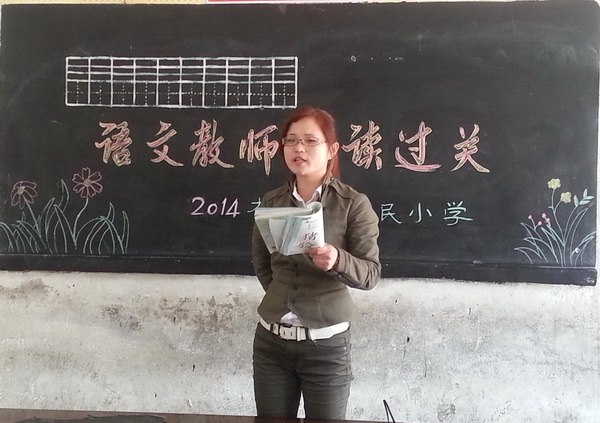 语文教师 读过关
2014 民小学